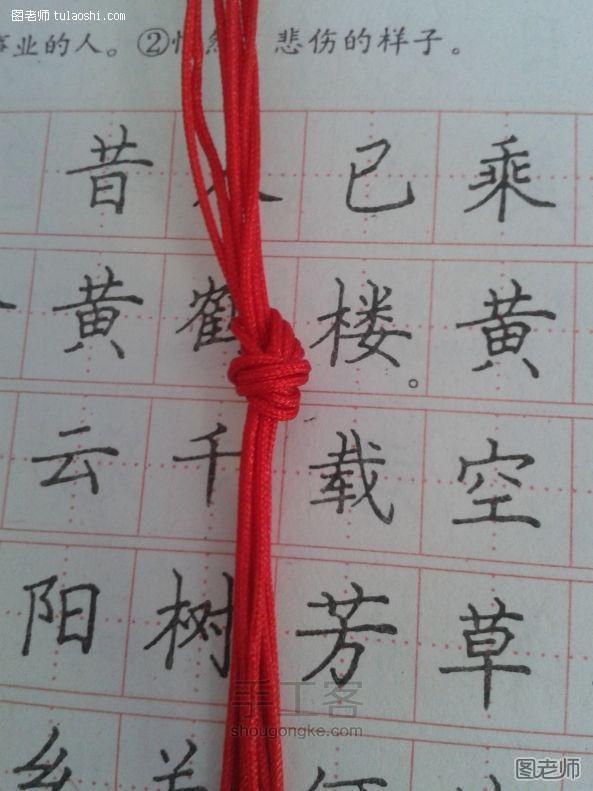 图老师 tulaoshi.com
事业的人。②怅然 悲伤的样子。
昔人已乘
黄鹤楼。黄
云千载空
阳树芳草
乡关何
手工客
shougongke.com
图老师